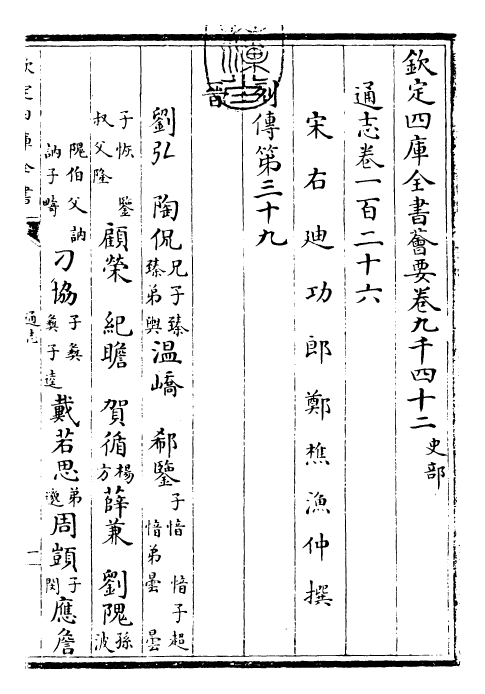 欽定四庫全書薈要卷九千四十二 史部
通志卷一百二十六
宋右廸功郎鄭樵漁仲撰
列傳第三十九
晉
劉弘 陶侃 兄子臻 臻弟輿 温嶠 郗鑒 子愔 愔子超 愔弟曇 曇
子恢 鑒 叔父隆 顧榮 紀瞻 賀循 楊方 薛兼 劉隗 孫波
隗伯父訥 訥子疇 刁協 子彝 彝子逵 戴若思 弟邈 周顗 子閔 應詹
欽定四庫全書
通志
一